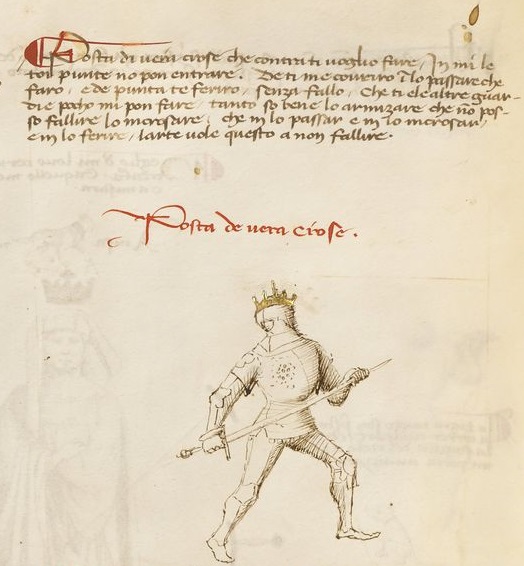 Posta di vera crose che contra ti voglio fare, In mi le
toi punte no pon entrare. De ti me covriro i lo passare che
faro, e de punta te feriro, senza fallo, Che ti e le altre guar-
die pocho mi pon fare, tanto so bene lo armizare che no pos-
so fallire lo incrosare, che in lo passar e in lo incrosar,
e in lo ferire, larte vole questo a non fallire.
Posta de vera crose.